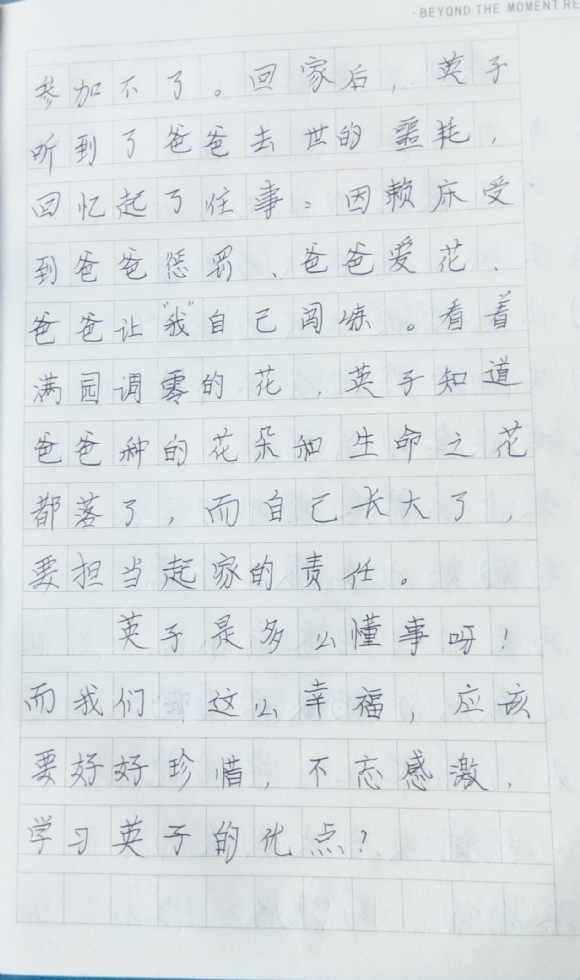 ·BEYOND THE MOMENT RE
参加不了。回家后，英子
听到了爸爸去世的噩耗，
回忆起了往事：因赖床受
到爸爸惩罚、爸爸爱花、
爸爸让"我"自己闯练。看着
满园调零的花，英子知道
爸爸种的花朵和生命之花
都落了，而自己长大了，
要担当起家的责任。
英子是多么懂事呀！
而我们 这么幸福，应该
要好好珍惜，不忘感激，
学习英子的优点？